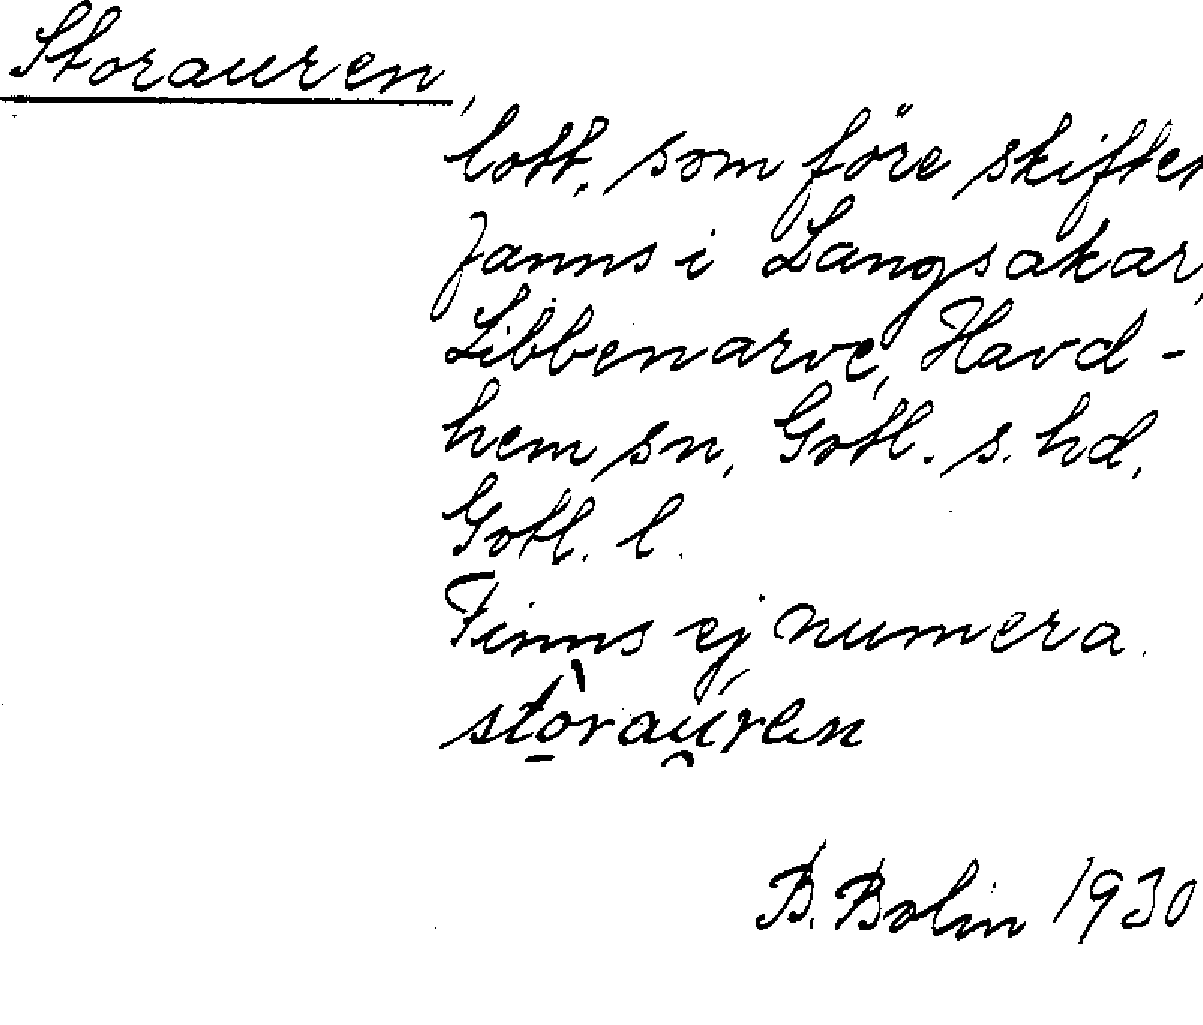 Storauren,
lott, som före skiftet
fanns i Langsakar,
Libbenarve, Havd-
hem sn, Gotl. s. hd,
Gotl. l.
Finns ej numera.
B. Bolin 1930